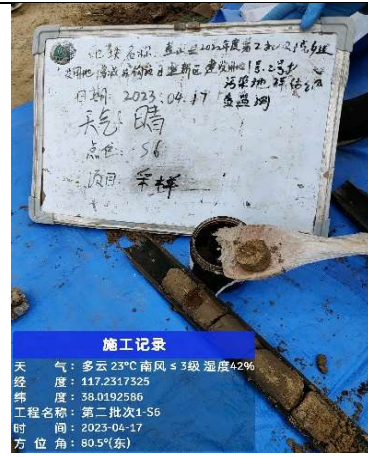 地块名称:盐山县2022年度第2批次1号
日期:2023.04.17
污染地
天气:晴
点位:S6
项目:采样
施工记录
天 气:多云 23℃ 南风 ≤ 3级 湿度42%
经 度:117.2317325
纬 度:38.0192586
工程名称:第二批次1-S6
时 间:2023-04-17
方 位 角:80.5°(东)